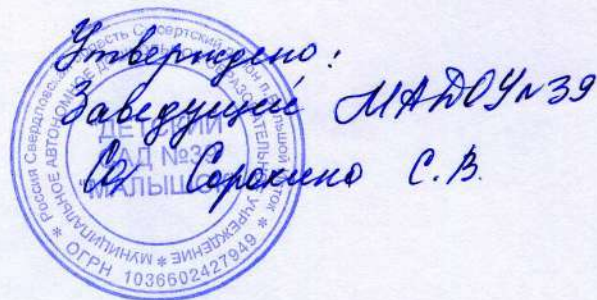 Утверждено:
Заведующий МАДОУ №39
Сорокина С.В.
Россия Свердловская область Сысертский район
МУНИЦИПАЛЬНОЕ АВТОНОМНОЕ ДОШКОЛЬНОЕ ОБРАЗОВАТЕЛЬНОЕ УЧРЕЖДЕНИЕ
ДЕТСКИЙ
САД №39
"МАЛЫШОК"
* ОГРН 1036602427949 *